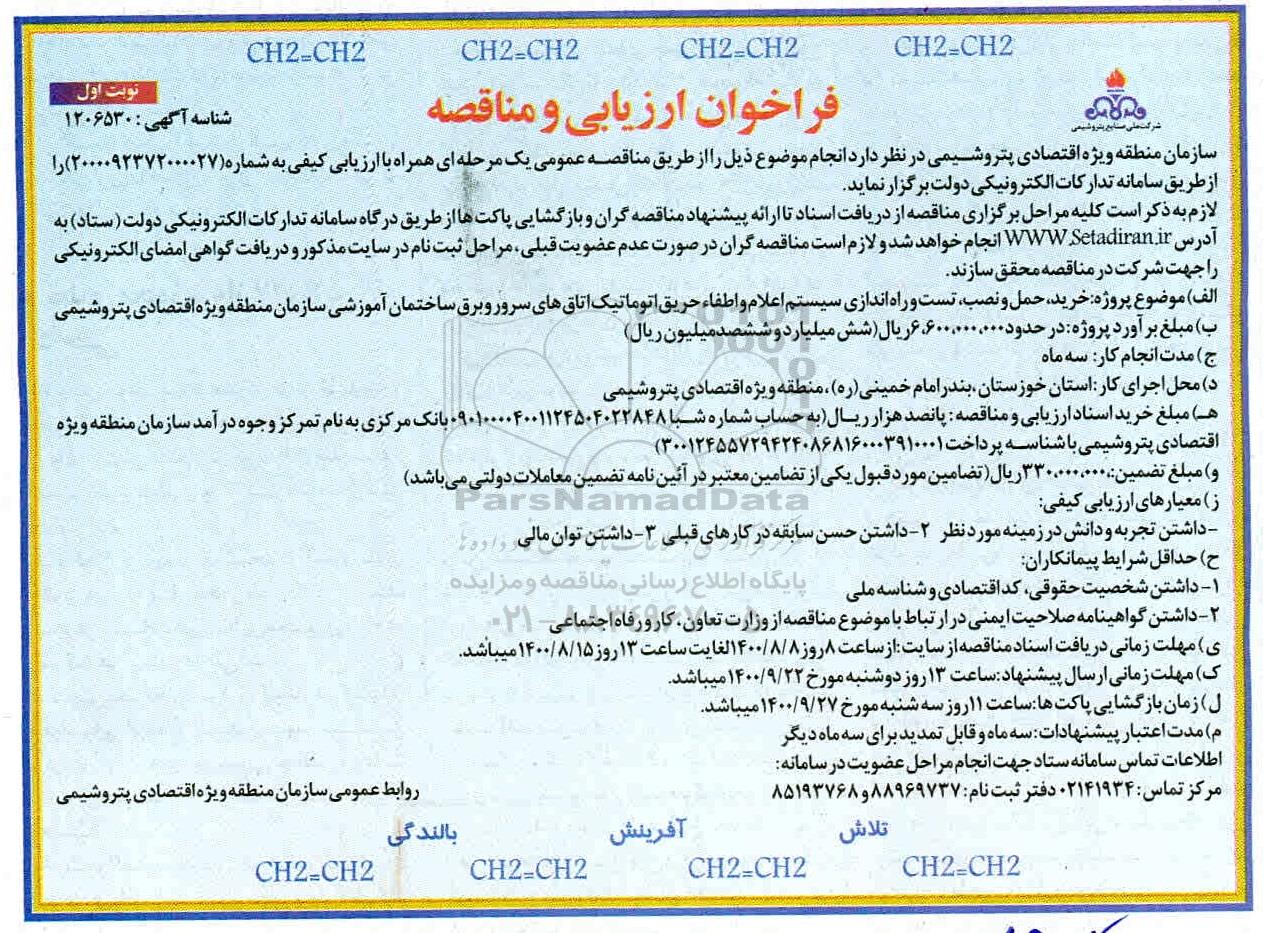 CH2=CH2 CH2=CH2 CH2=CH2 CH2=CH2
نوبت اول
فراخوان ارزیابی و مناقصه
شناسه آگهی : ۱۲۰۶۵۳۰
شرکت ملی صنایع پتروشیمی
سازمان منطقه ویژه اقتصادی پتروشیمی در نظر دارد انجام موضوع ذیل را از طریق مناقصه عمومی یک مرحله ای همراه با ارزیابی کیفی به شماره (۲۰۰۰۰۹۲۳۷۲۰۰۰۰۲۷) را
از طریق سامانه تدارکات الکترونیکی دولت برگزار نماید.
لازم به ذکر است کلیه مراحل برگزاری مناقصه از دریافت اسناد تا ارائه پیشنهاد مناقصه گران و بازگشایی پاکت ها از طریق درگاه سامانه تدارکات الکترونیکی دولت (ستاد) به
آدرس WWW.Setadiran.ir انجام خواهد شد و لازم است مناقصه گران در صورت عدم عضویت قبلی، مراحل ثبت نام در سایت مذکور و دریافت گواهی امضای الکترونیکی
را جهت شرکت در مناقصه محقق سازند.
الف) موضوع پروژه: خرید، حمل و نصب، تست و راه اندازی سیستم اعلام و اطفاء حریق اتوماتیک اتاق های سرور و برق ساختمان آموزشی سازمان منطقه ویژه اقتصادی پتروشیمی
ب) مبلغ برآورد پروژه: در حدود ۶،۶۰۰،۰۰۰،۰۰۰ ریال (شش میلیارد و ششصد میلیون ریال)
ج) مدت انجام کار: سه ماه
د) محل اجرای کار: استان خوزستان، بندر امام خمینی (ره)، منطقه ویژه اقتصادی پتروشیمی
هـ) مبلغ خرید اسناد ارزیابی و مناقصه: پانصد هزار ریـال (به حساب شماره شبـا ۰۹۰۱۰۰۰۰۴۰۰۱۱۲۴۵۰۴۰۲۲۸۴۸ بانک مرکزی به نام تمرکز وجوه درآمد سازمان منطقه ویژه
اقتصادی پتروشیمی با شناسـه پرداخت ۳۰۰۱۲۴۵۵۷۲۹۴۲۴۰۸۶۸۱۶۰۰۰۳۹۱۰۰۰۱)
و) مبلغ تضمین: ۳۳۰،۰۰۰،۰۰۰ ریال (تضامین مورد قبول یکی از تضامین معتبر در آئین نامه تضمین معاملات دولتی می باشد)
ز) معیارهای ارزیابی کیفی:
-داشتن تجربه و دانش در زمینه مورد نظر ۲-داشتن حسن سابقه در کارهای قبلی ۳-داشتن توان مالی
ح) حداقل شرایط پیمانکاران:
۱-داشتن شخصیت حقوقی، کد اقتصادی و شناسه ملی
۲-داشتن گواهینامه صلاحیت ایمنی در ارتباط با موضوع مناقصه از وزارت تعاون، کار و رفاه اجتماعی
ی) مهلت زمانی دریافت اسناد مناقصه از سایت: از ساعت ۸ روز ۱۴۰۰/۸/۸ لغایت ساعت ۱۳ روز ۱۴۰۰/۸/۱۵ میباشد.
ک) مهلت زمانی ارسال پیشنهاد: ساعت ۱۳ روز دوشنبه مورخ ۱۴۰۰/۹/۲۲ میباشد.
ل) زمان بازگشایی پاکت ها: ساعت ۱۱ روز سه شنبه مورخ ۱۴۰۰/۹/۲۷ میباشد.
م) مدت اعتبار پیشنهادات: سه ماه و قابل تمدید برای سه ماه دیگر
اطلاعات تماس سامانه ستاد جهت انجام مراحل عضویت در سامانه:
مرکز تماس: ۰۲۱۴۱۹۳۴ دفتر ثبت نام: ۸۸۹۶۹۷۳۷ و ۸۵۱۹۳۷۶۸
روابط عمومی سازمان منطقه ویژه اقتصادی پتروشیمی
تلاش آفرینش بالندگی
CH2=CH2 CH2=CH2 CH2=CH2 CH2=CH2
ParsNamadData
پایگاه اطلاع رسانی مناقصه و مزایده